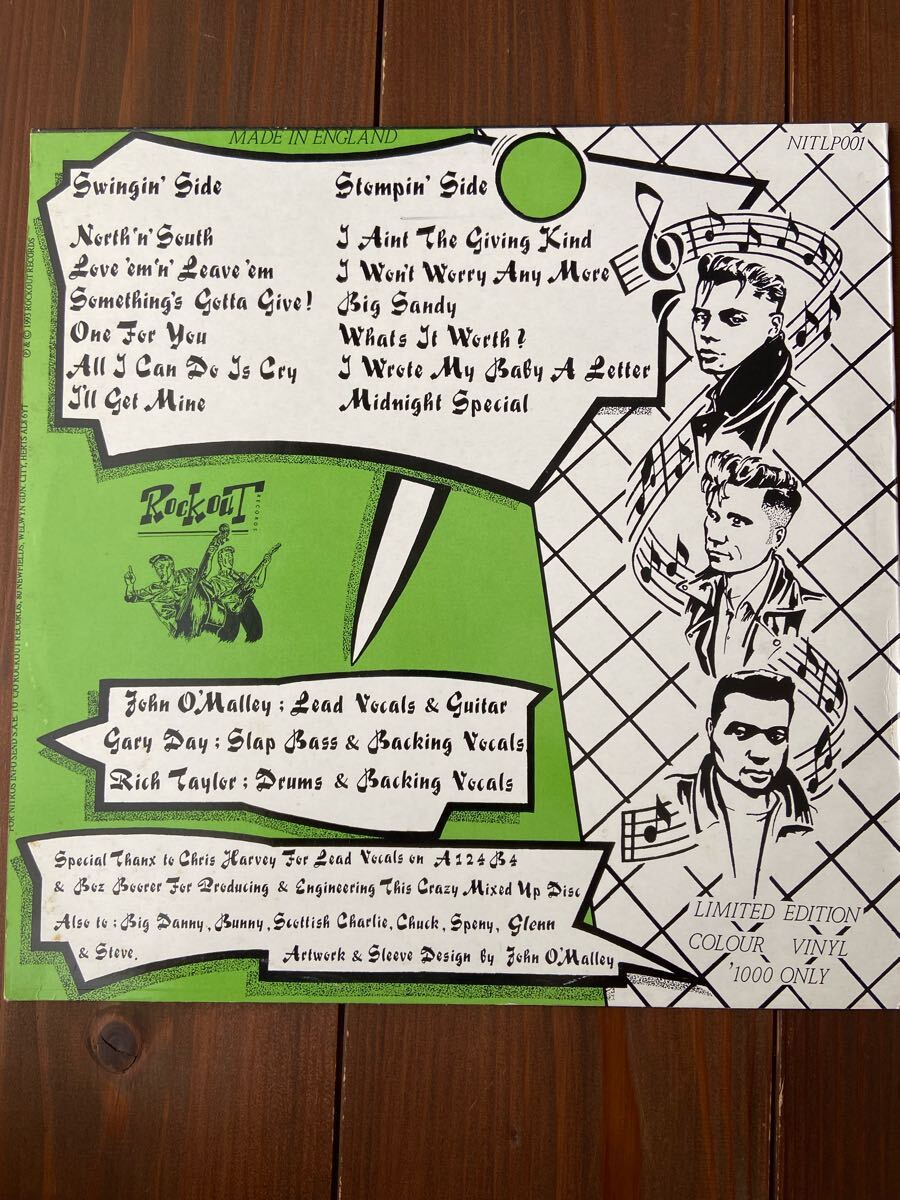 MADE IN ENGLAND
NITLP001
Swingin' Side
North 'n' South
Love 'em 'n' Leave 'em
Something's Gotta Give!
One For You
All I Can Do Is Cry
I'll Get Mine
Stompin' Side
I Aint The Giving Kind
I Won't Worry Any More
Big Sandy
Whats It Worth?
I Wrote My Baby A Letter
Midnight Special
℗ & © 1993 ROCKOUT RECORDS
Rockout
RECORDS
John O'Malley ; Lead Vocals & Guitar
Gary Day ; Slap Bass & Backing Vocals
Rich Taylor ; Drums & Backing Vocals
Special Thanx to Chris Harvey For Lead Vocals on A124 B4
& Boz Boorer For Producing & Engineering This Crazy Mixed Up Disc
Also to : Big Danny, Bunny, Scottish Charlie, Chuck, Speny, Glenn
& Steve.
Artwork & Sleeve Design by John O'Malley
LIMITED EDITION
COLOUR VINYL
'1000 ONLY